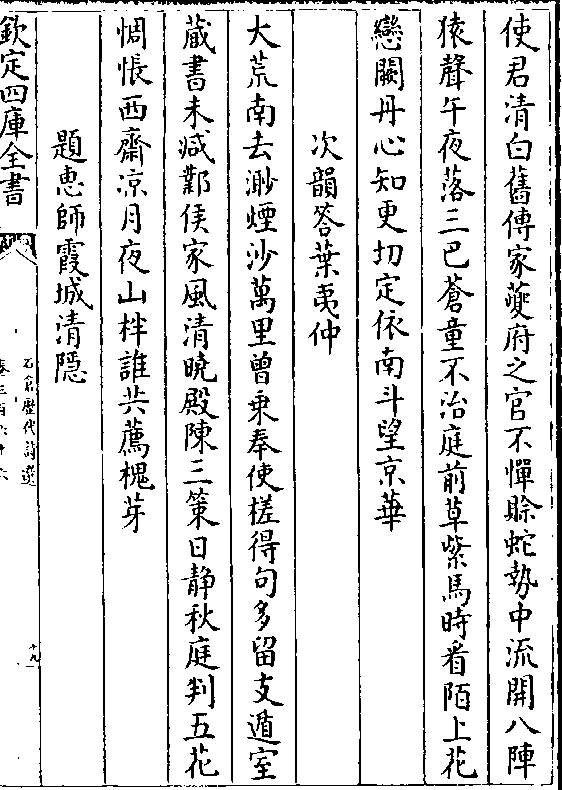 使君清白舊傳家夔府之官不憚賖蛇勢中流開八陣
猿聲午夜落三巴蒼童不治庭前草紫馬時看陌上花
戀闕丹心知更切定依南斗望京華
次韻答葉夷仲
大荒南去渺煙沙萬里曾乗奉使槎得句多留支遁室
蔵書未减鄴侯家風清曉殿陳三策日静秋庭判五花
惆悵西齋凉月夜山柈誰共薦槐芽
題恵師霞城清隱
欽定四庫全書
石倉歷代詩選
十九